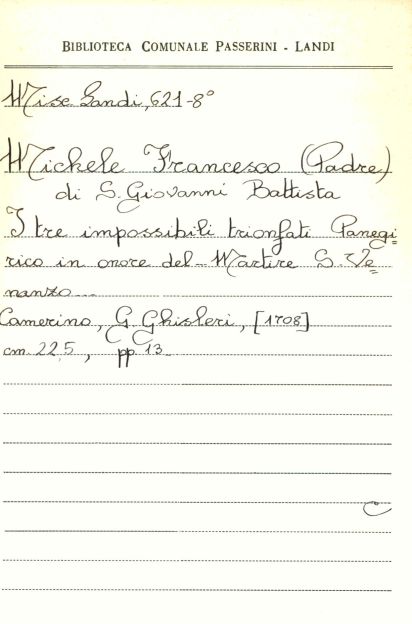 BIBLIOTECA COMUNALE PASSERINI - LANDI
Misc. Landi, 621-8°
Michele Francesco (Padre)
di S. Giovanni Battista
I tre impossibili trionfati Panegi=
rico in onore del Martire S. Ve=
nanzo...
Camerino, G. Ghisleri, [1708]
cm. 22,5, pp. 13.
C